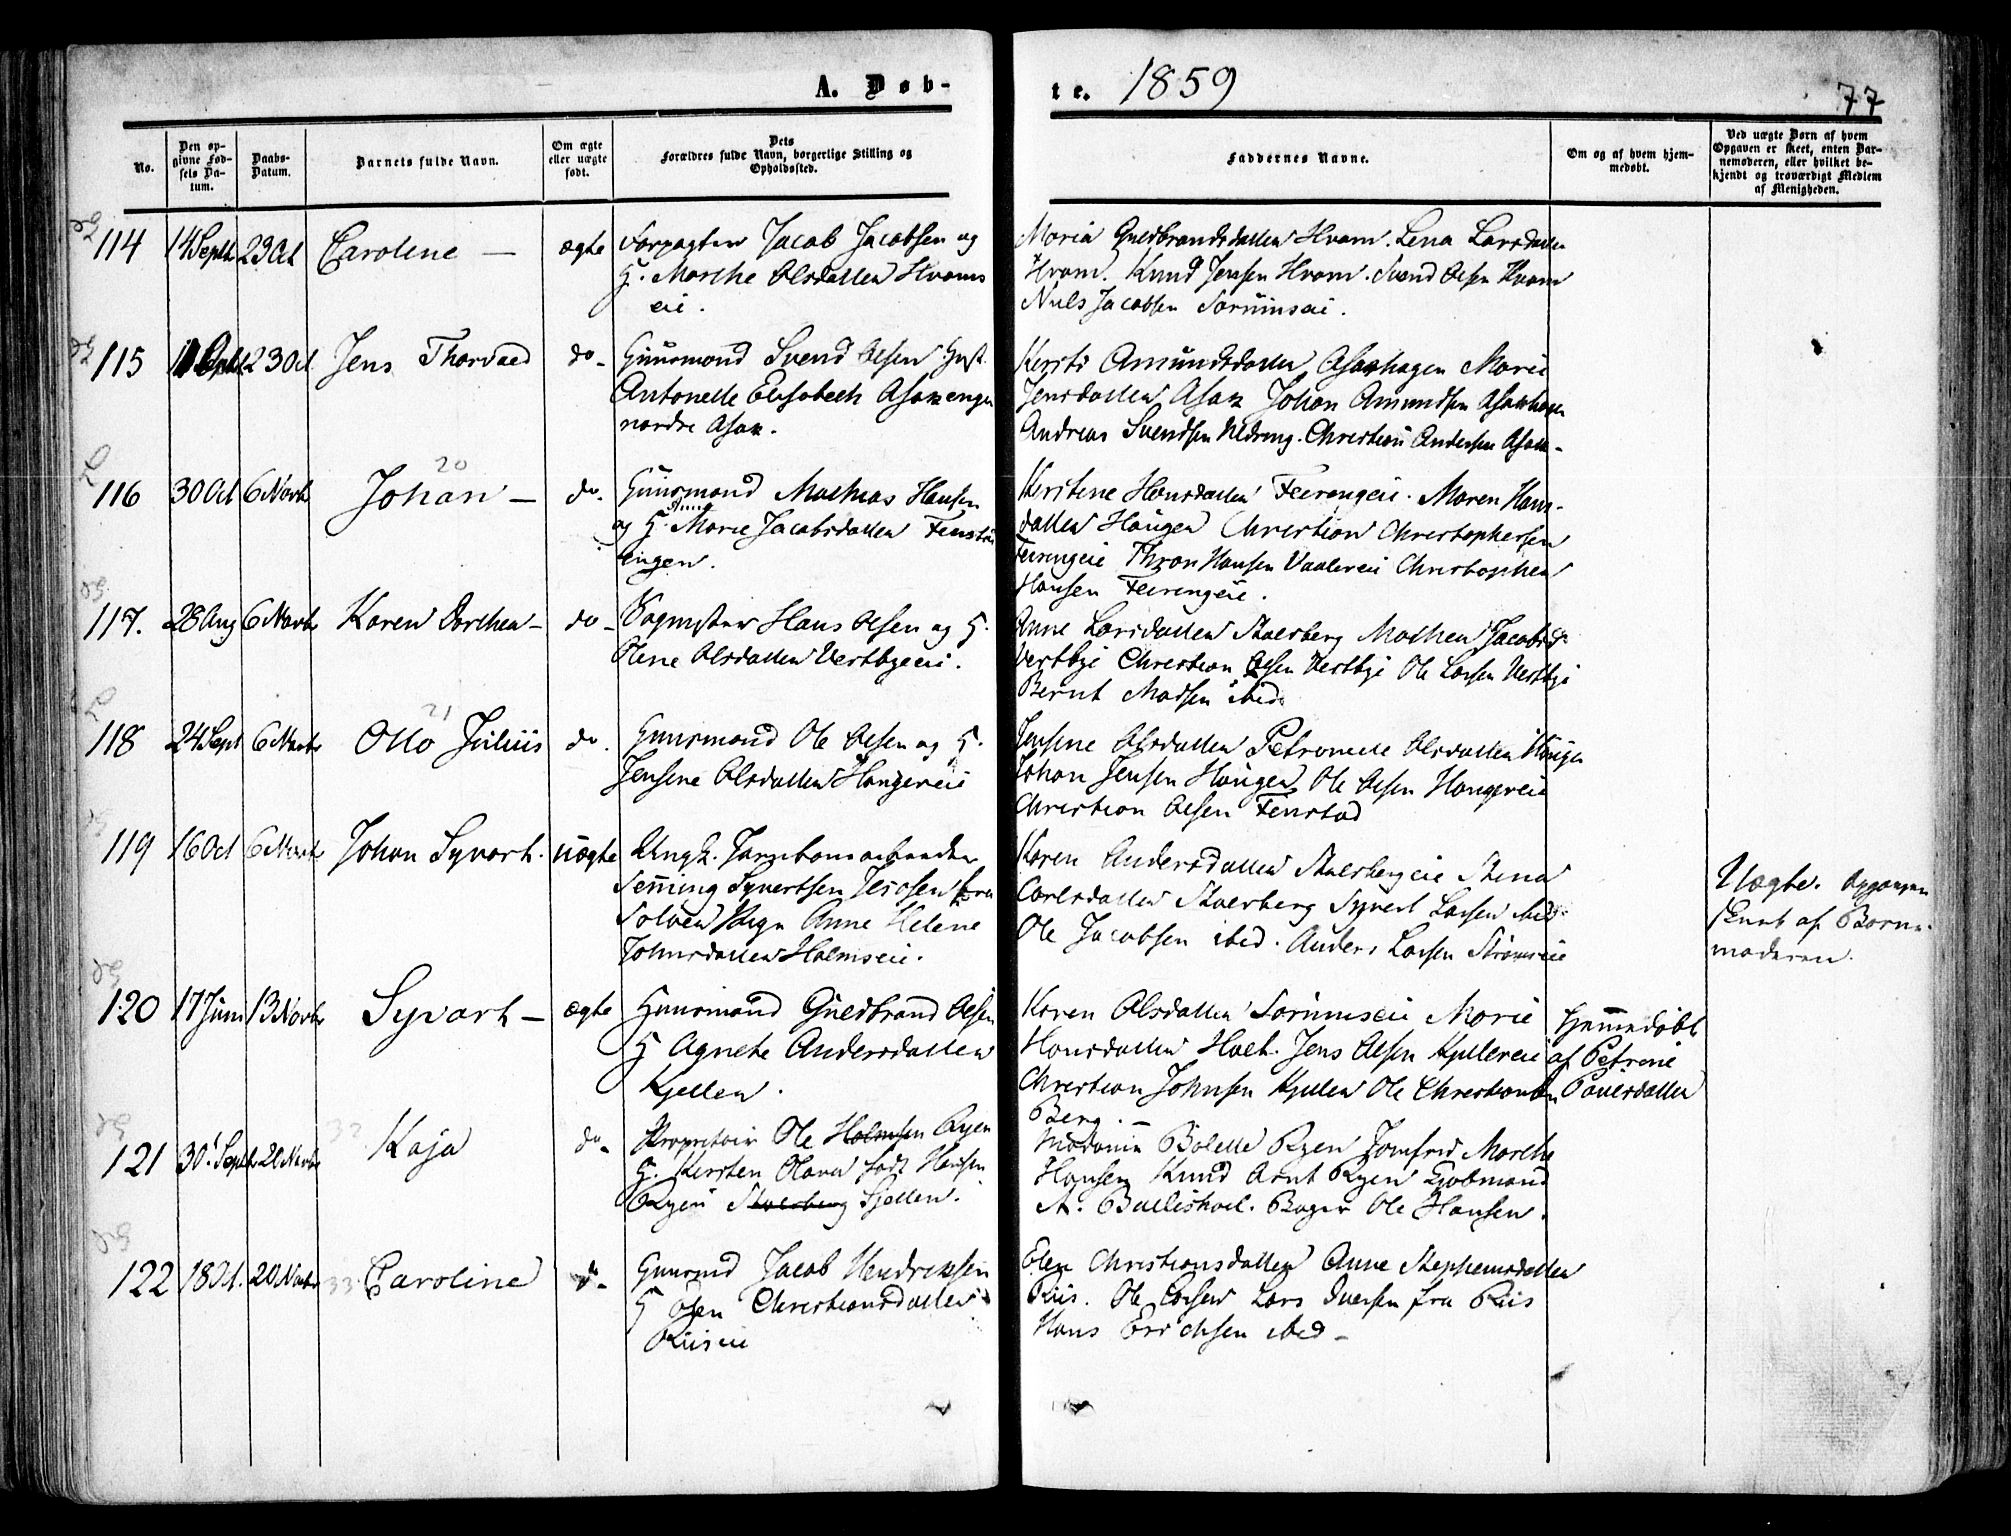 A. Døb-
te. 1859
77
No.
Den op-
givne Fød-
sels Da-
tum.
Daabs-
Datum.
Barnets fulde Navn.
Om ægte
eller uægte
født.
Dets
Forældres fulde Navn, borgerlige Stilling og
Opholdssted.
Faddernes Navne.
Om og af hvem hjem-
medøbt.
Ved uægte Børn af hvem
Opgaven er skeet, enten Bar-
nemoderen, eller hvilket be-
kjendt og troværdigt Medlem
af Menigheden.
114 14 Septb 23 Oct Caroline — ægte Forpagter Jacob Jacobsen og
H. Marthe Olsdatter Hvams
eie.
Maria Guldbrandsdatter Hvam. Lena Larsdatter
Hvam. Knud Jensen Hvam. Svend Olsen Hvam
Niels Jacobsen Sørumseie.
115 23 Oct Jens Thorvald do- Guurmand Svend Olsen
Antonette Elisabeth Asakengen
nordre Asak.
Kersti Amundsdatter Asakhagen Marie
Jensdatter Asak Johan Amundsen Asakhagen
Andreas Svendsen Christian Andersen Asak-
116 30 Oct 6 Novb 20 Johan — do. Guurmand Mathias Hansen
og H. Anne Marie Jacobsdatter
engen.
Kirstine Hansdatter Feiringeie. Maren Hans-
datter Haugen Christian Christophersen
Feiringeie Thron Hansen Vaalereie Christopher
Hansen Feiringeie.
117. 28 Aug 6 Novbr Karen Dorthea — do- Hans Olsen og H.
Oline Olsdatter Vestbyeeie.
Anne Larsdatter Skaerberg Mathea Jacobsd
Vestbye Christian Olsen Vestbye Ole Larsen Vestbye
Bernt Madsen ibid.
118 24 Sept 6 Novbr 21 Otto Julius do. Guurmand Ole Olsen og H.
Jensine Olsdatter Haugereie
Jensine Olsdatter Petronelle Olsdatter Haugen
Johan Jensen Haugen Ole Olsen Haugereie
Christian Olsen Fenstad
119 16 Oct 6 Novbr Johan Syvert. uægte Ungk. Jernbanearbeider
Syvertsen fra
Soløen Pige Anne Helene
Johnsdatter Holmseie.
Karen Andersdatter Skaerbergeie Stina
Carlsdatter Skaerberg Syvert Larsen ibid
Ole Jacobsen ibid. Anders Larsen Strømseie
Uægte. Opgaven
skeet af Barne-
moderen.
120 17 Juni 13 Novbr Syvert — ægte Guurmand Guldbrand Olsen
H Agnethe Andersdatter
Kjellen.
Karen Olsdatter Sørumseie Marie
Hansdatter Holt. Jens Olsen Kjellereie
Christian Johnsen Kjellen Ole Christiansen
Berg. —
Hjemmedøbt
af Petrine
Paulsdatter
121 30' Septbr 20 Novbr 33 Kaja do- Proprietair Ole Holmsen Ryen
H. Kirsten Olava født Hansen
Ryen Skaerberg Fjellen.
Madame Bolette Ryen Jomfru Marthe
Hansen Knud Arnt Ryen Kjøbmand
A. Bager Ole Hansen.
122 18 Oct. 20 Novbr 33 Caroline do- Guurmd Jacob Hendriksen
H Olea Christiansdatter
Riiseie
Elen Christiansdatter Anne Stephensdatter
Riis. Ole Larsen Lars Iversen fra Riis
Hans Erichsen ibid —